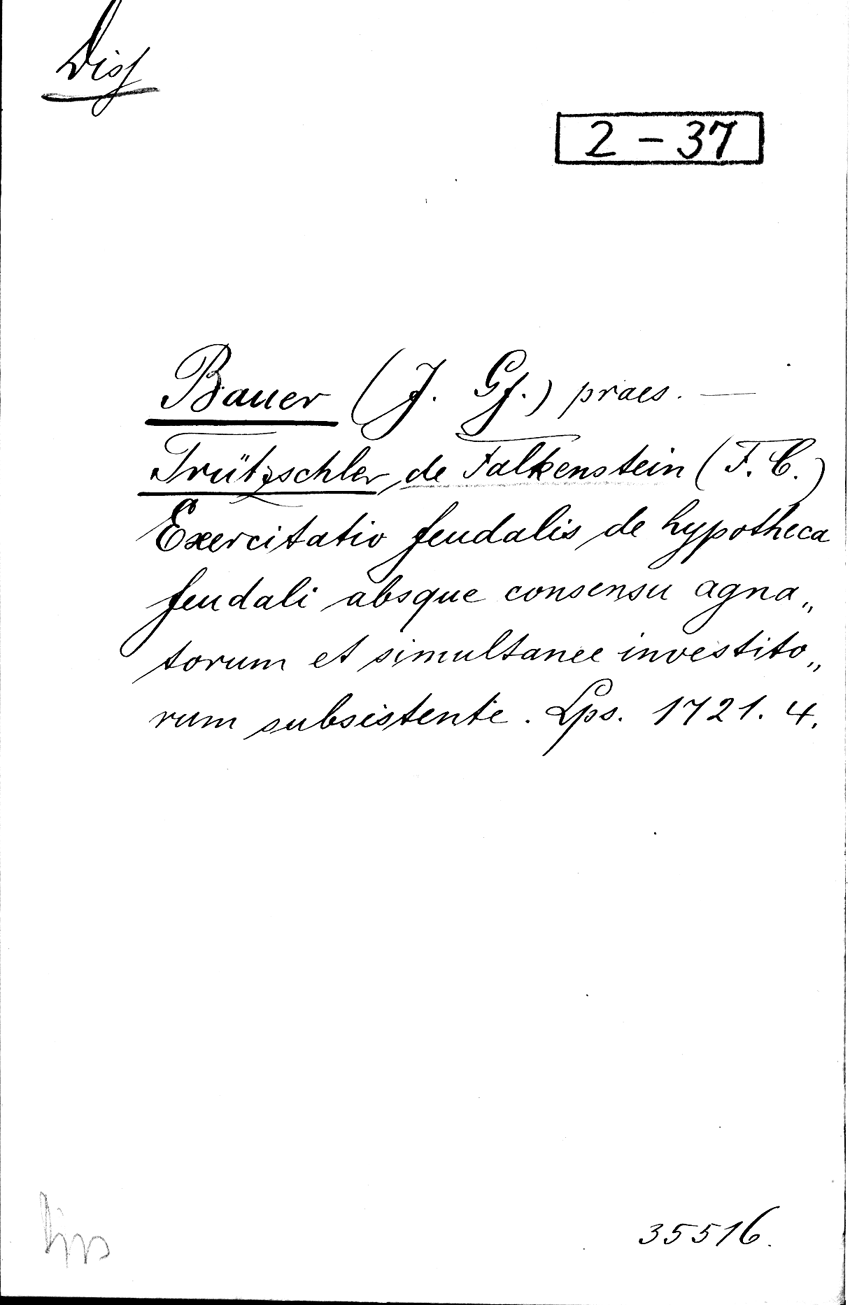 Diss
2 - 37
Bauer (J. Gf.) praes. —
Trützschler de Falkenstein (F. C.)
Exercitatio feudalis de hypotheca
feudali absque consensu agna„
torum et simultanee investito„
rum subsistente. Lps. 1721. 4.
35516.